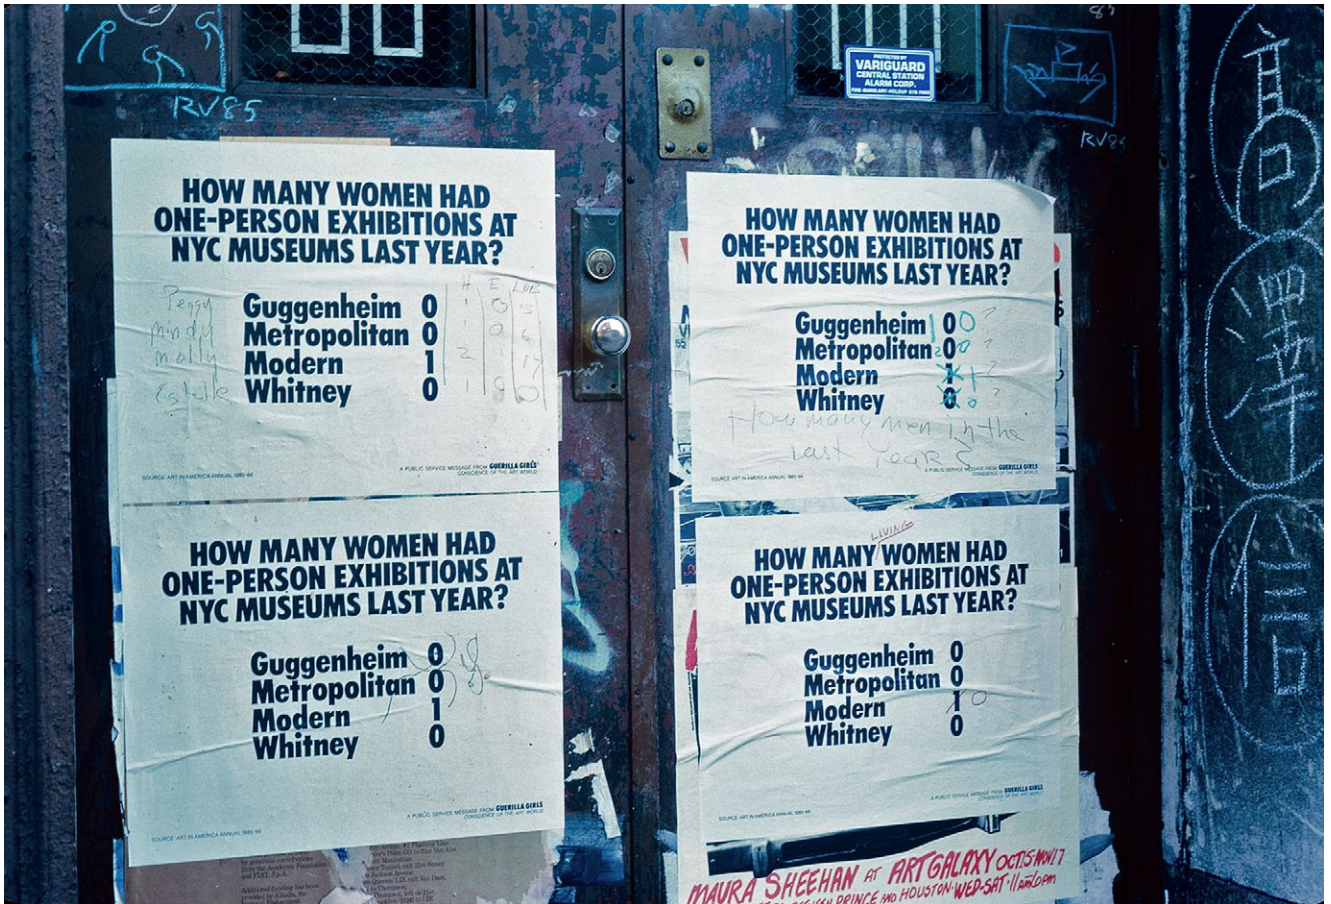 RV85
PROTECTED BY
VARIGUARD
CENTRAL STATION
ALARM CORP.
HOW MANY WOMEN HAD
ONE-PERSON EXHIBITIONS AT
NYC MUSEUMS LAST YEAR?
H E
Peggy
Guggenheim 0
1 0 5
Mindy
Metropolitan 0
1 0 6
Molly
Modern 1
2 1 17
Estelle
Whitney 0
1 0
SOURCE: ART IN AMERICA ANNUAL, 1985-86
A PUBLIC SERVICE MESSAGE FROM GUERILLA GIRLS
CONSCIENCE OF THE ART WORLD
HOW MANY WOMEN HAD
ONE-PERSON EXHIBITIONS AT
NYC MUSEUMS LAST YEAR?
Guggenheim 0 0 ?
Metropolitan 0 0 ?
Modern 1 1 ?
Whitney 0 0 ?
How many men in the
last year?
SOURCE: ART IN AMERICA ANNUAL, 1985-86
A PUBLIC SERVICE MESSAGE FROM GUERILLA GIRLS
CONSCIENCE OF THE ART WORLD
HOW MANY WOMEN HAD
ONE-PERSON EXHIBITIONS AT
NYC MUSEUMS LAST YEAR?
Guggenheim 0
Metropolitan 0
Modern 1
Whitney 0
SOURCE: ART IN AMERICA ANNUAL, 1985-86
A PUBLIC SERVICE MESSAGE FROM GUERILLA GIRLS
CONSCIENCE OF THE ART WORLD
LIVING
HOW MANY WOMEN HAD
ONE-PERSON EXHIBITIONS AT
NYC MUSEUMS LAST YEAR?
Guggenheim 0
Metropolitan 0
Modern 1 0
Whitney 0
SOURCE: ART IN AMERICA ANNUAL, 1985-86
A PUBLIC SERVICE MESSAGE FROM GUERILLA GIRLS
CONSCIENCE OF THE ART WORLD
by generous contributions
from the Academic Foundation
and FIAT, S.p.A.
Additional funding has been
MAURA SHEEHAN AT ART GALAXY OCT 15 NOV 17
PRINCE AND HOUSTON WED-SAT
信